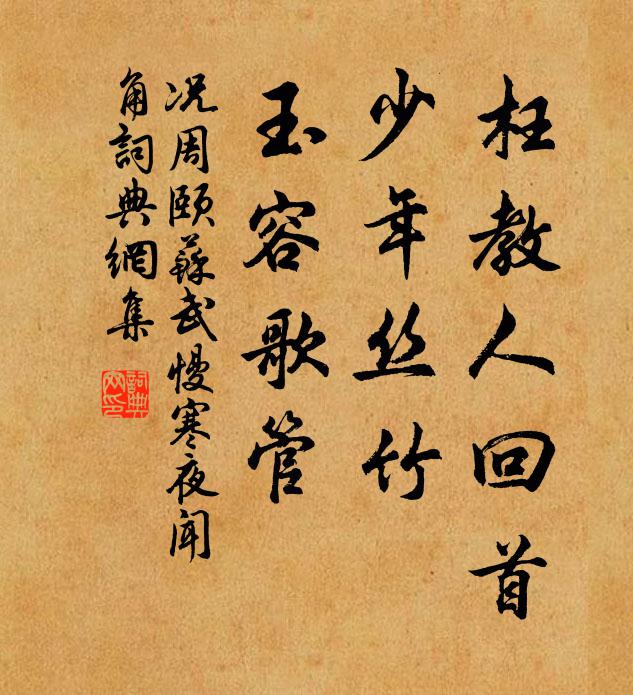 枉教人回首
少年丝竹
玉容歌管
况周颐蘇武慢寒夜闻
角詞典網集
詞典
网印